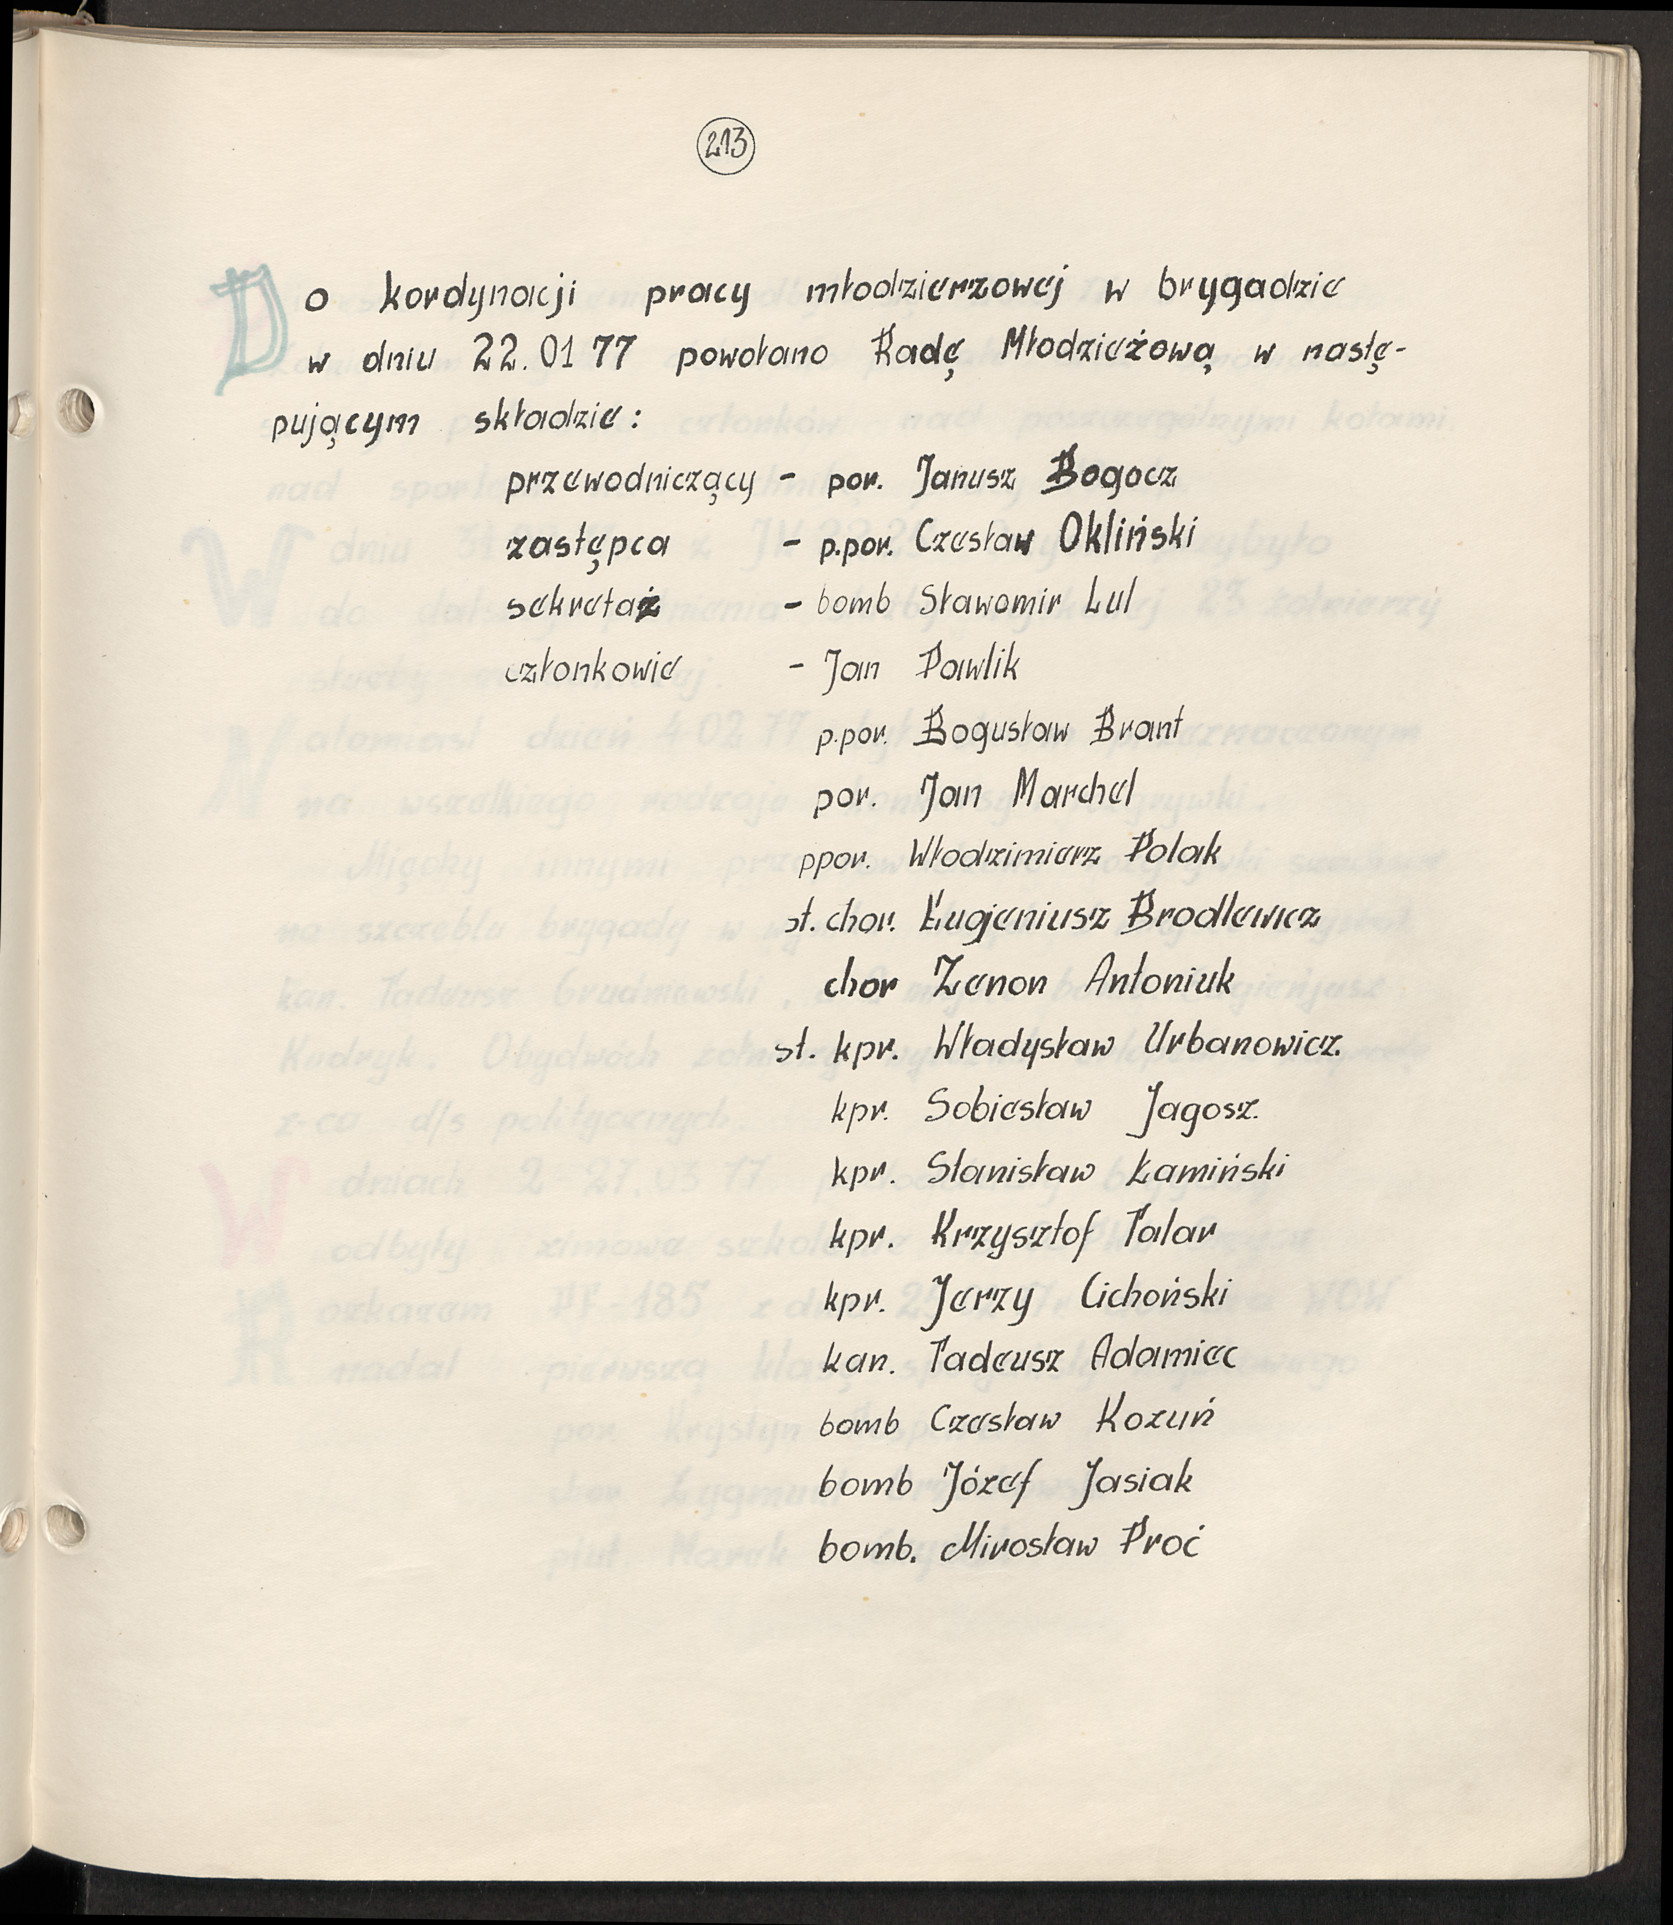 213
Do kordynacji pracy młodzierzowej w brygadzie
w dniu 22.01 77 powołano Radę Młodzieżową w nastę-
pującym składzie:
przewodniczący - por. Janusz Bogocz
zastępca - p.por. Czesław Okliński
sekretaż - bomb Sławomir Lul
członkowie - Jan Pawlik
p.por. Bogusław Brant
por. Jan Marchel
ppor. Włodzimierz Polak
st. chor. Eugeniusz Brodlewicz
chor Zenon Antoniuk
st. kpr. Władysław Urbanowicz.
kpr. Sobiesław Jagosz.
kpr. Stanisław Łamiński
kpr. Krzysztof Talar
kpr. Jerzy Cichoński
kan. Tadeusz Adamiec
bomb Czesław Kozuń
bomb Józef Jasiak
bomb. Mirosław Proć